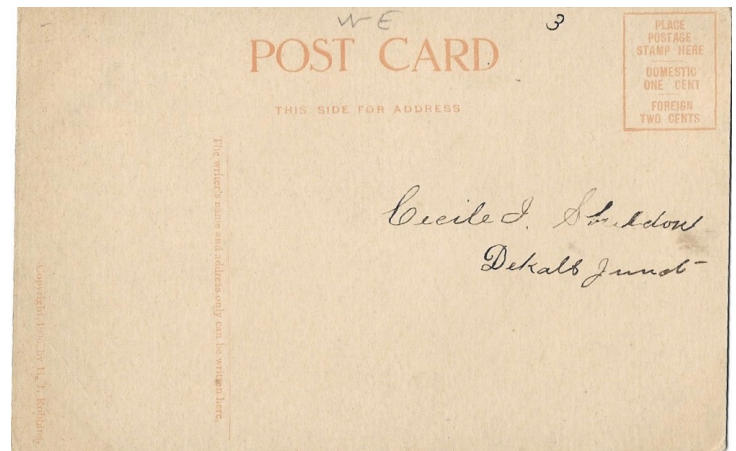 W E
3
POST CARD
THIS SIDE FOR ADDRESS
PLACE
POSTAGE
STAMP HERE
DOMESTIC
ONE CENT
FOREIGN
TWO CENTS
The writer's name and address only can be written here.
Cecile I. Sheldon
Dekalb Junct
Copyright by H. J.